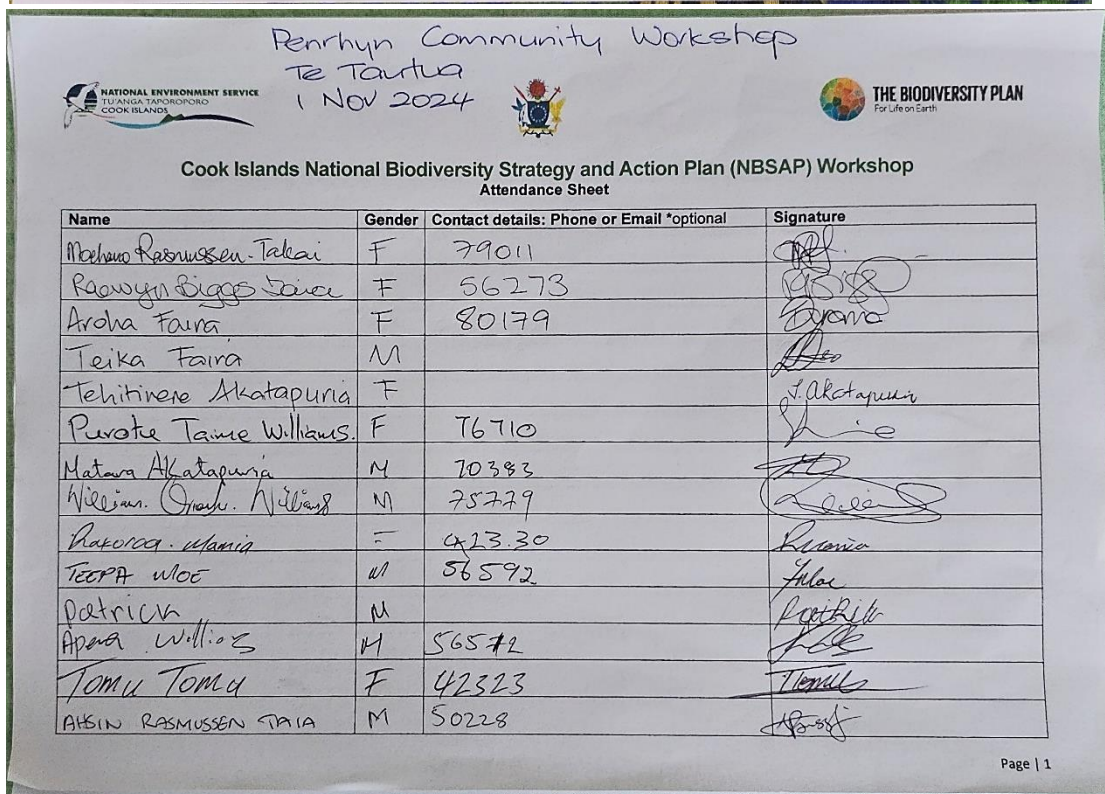 Penrhyn Community Workshop
Te Tautua
1 Nov 2024
NATIONAL ENVIRONMENT SERVICE
TU'ANGA TAPOROPORO
COOK ISLANDS
THE BIODIVERSITY PLAN
For Life on Earth
Cook Islands National Biodiversity Strategy and Action Plan (NBSAP) Workshop
Attendance Sheet
Name Gender Contact details: Phone or Email *optional Signature
Rasmussen-Takai F 79011
Biggs F 56273
Aroha Faira F 80179
Teika Faira M
Tehitinere Akatapuria F T. Akatapuria
Purotu Taime Williams. F 76710
Matara Akatapuria M 70383
William. Williams M 75779
Mania 423.30
TEEPA MOE M 56592
Patrick M Patrick
Apera Williams M 56572
Tomu Tomu F 42323
AHSIN RASMUSSEN TAIA M 50228
Page | 1